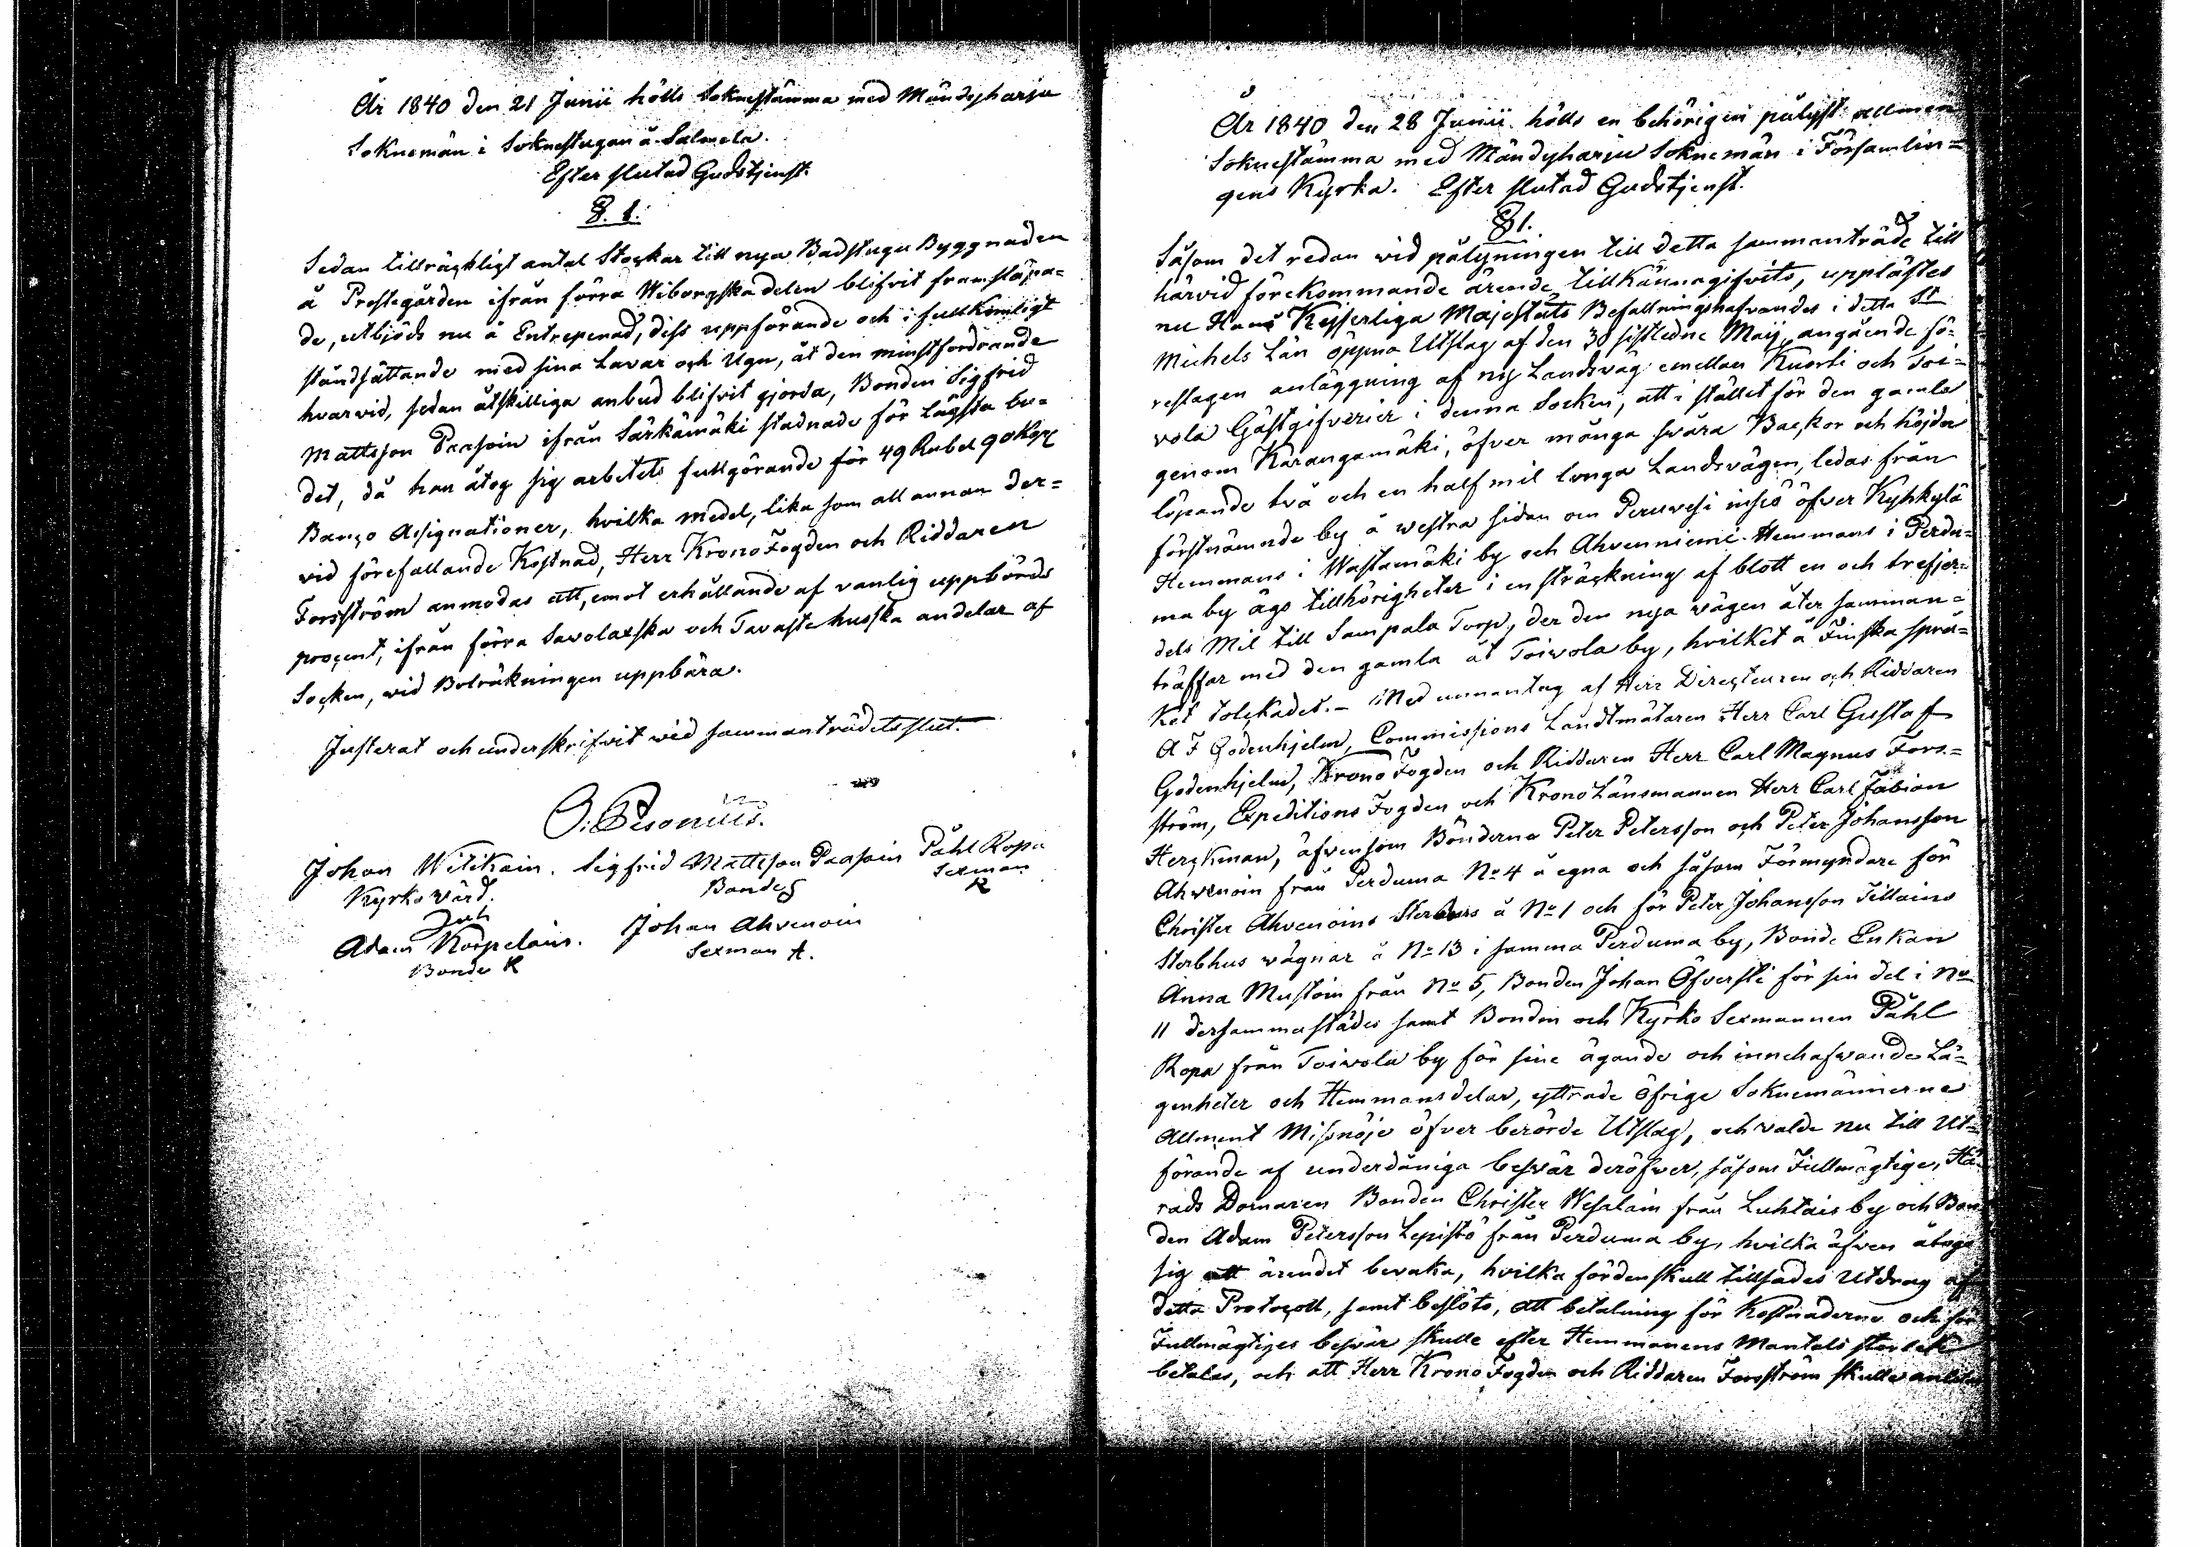 År 1840 den 21 Junii hölls Soknestämma med Mändyharju
Soknemän i Soknestugan å Salmela.
Efter slutad Gudstjenst.
§. 1.
Sedan tillräckligt antal Stockar till nya Badstugu Byggnaden
å Prostegården ifrån förra Wiborgska delen blifvit framsläpa-
de, utbjöds nu å Entreprenad, dess uppförande och i fullkomligt
ståndsättande med sina Lavar och Ugn, åt den minstfordrande
hvarvid, sedan åtskilliga anbud blifvit gjorda, Bonden Sigfrid
Mattsson Paasoin ifrån Särkämäki stadnade för Lägsta bu-
det, då han åtog sig arbetets fullgörande för 49 Rubel 90 Kop
Banco Assignationer, hvilka medel, lika som all annan der-
vid förefallande Kostnad, Herr KronoFogden och Riddaren
Forsström anmodas att, emot erhållande af vanlig uppbörds
procent, ifrån förra Savolaxska och Tavastehusska andelar af
Socken, wid Bolräkningen uppbära.
Justerat och underskrifvit wid sammanträdets slut.
O: Pesonius.
Johan Witikain. Sigfrid Mattsson Paasoin Påhl Ropa
Kyrkovärd. Bonde Sexman
R
Adam Korpelain. Johan Ahvenoin
Bonde K Sexman A.
År 1840 den 28 Junii hölls en behörigen pålyst allmän
Soknestämma med Mändyharju Soknemän i Församlin-
gens Kyrka. Efter slutad Gudstjenst.
§1.
Såsom det redan wid pålysningen till detta sammanträde till
härvid förekommande ärende tillkännagifvits, upplästes
nu Hans Kejserliga Majestäts Befallningshafvandes i detta St
Michels Län öppna Utslag af den 30 sistledne Maij, angående fö-
restagen anläggning af ny Landsväg emellan Kuorti och Toi-
vola Gästgifverier i denna Socken, att i stället för den gamla
genom Karangamäki, öfver många svåra Backor och höjder
löpande två och en half mil långa Landsvägen, ledas från
förstnämnde by å westra sidan om Peruwesi insjö öfver Kyhkylä
Hemmans i Wastamäki by och Ahvenniemi Hemmans i Perdu-
ma by ägs tillhörigheter i en sträckning af blott en och trefjer-
dels Mil till Sampala Torp, der den nya vägen åter samman-
träffar med den gamla åt Toivola by, hvilket å Finska språ-
ket tolckades. - Med unnantag af Herr Directeuren och Riddaren
A F Godenhjelm, Commissions Landtmätaren Herr Carl Gustaf
Godenhjelm, Krono Fogden och Riddaren Herr Carl Magnus Fors-
ström, Expeditions Fogden och Krono Länsmannen Herr Carl Fabian
Herckman, äfvensom Bönderna Peter Petersson och Peter Johansson
Ahvenoin från Perduma No 4 å egna och såsom Förmyndare för
Christer Ahvenoins Sterbhus å No 1 och för Peter Johansson Tillains
Sterbhus vägnar å No 13 i samma Perduma by, Bonde Enkan
Anna Mustoin från No 5, Bonden Johan Öfversti för sin del i No
11 dersammastädes samt Bonden och Kyrko Sexmannen Påhl
Ropa från Toivola by för sine ägande och innehafwande Lä-
genheter och Hemmansdelar, yttrade öfrige Soknemännerne
Allment Missnöje öfver berörde Utslag, och valde nu till Ut-
förande af underdåniga besvär deröfwer, såsom Fullmägtige, Hä-
rads Domaren Bonden Christer Wesalain från Luhtais by och Bon
den Adam Petersson Lepistö från Perduma by, hvilka äfwen åtogo
sig att ärendet bevaka, hvilka fördenskull tillsades Utdrag af
detta Protocoll, samt beslöts, att betalning för Kostnaderna och för
Fullmägtiges besvär skulle efter Hemmanens Mantals storlek
betalas, och att Herr Krono Fogden och Riddaren Forsström skulle anlitas